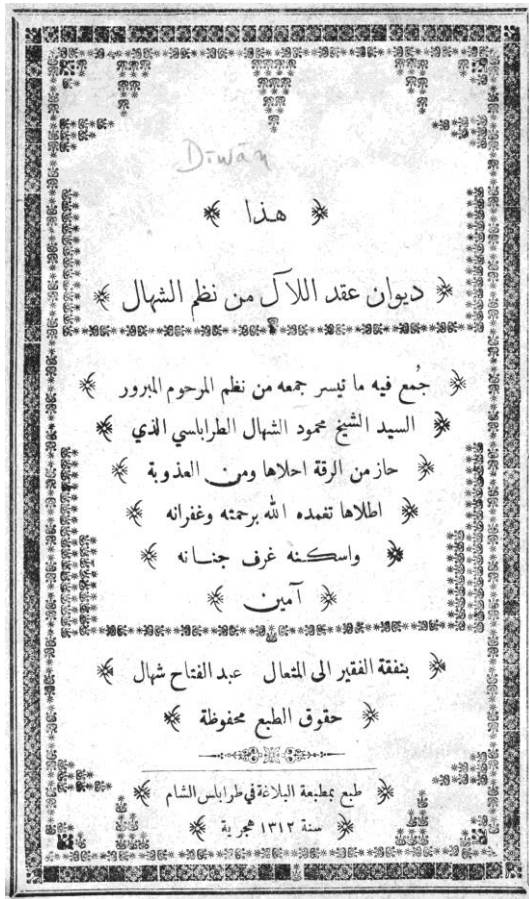 Dīwān
هذا
ديوان عقد اللآل من نظم الشهال
جُمع فيه ما تيسر جمعه من نظم المرحوم المبرور
السيد الشيخ محمود الشهال الطرابلسي الذي
حاز من الرقة احلاها ومن العذوبة
اطلاها تغمده الله برحمته وغفرانه
واسكنه غرف جنانه
آمين
بنفقة الفقير الى المتعال عبد الفتاح شهال
حقوق الطبع محفوظة
طبع بمطبعة البلاغة في طرابلس الشام
سنة ١٣١٢ هجرية